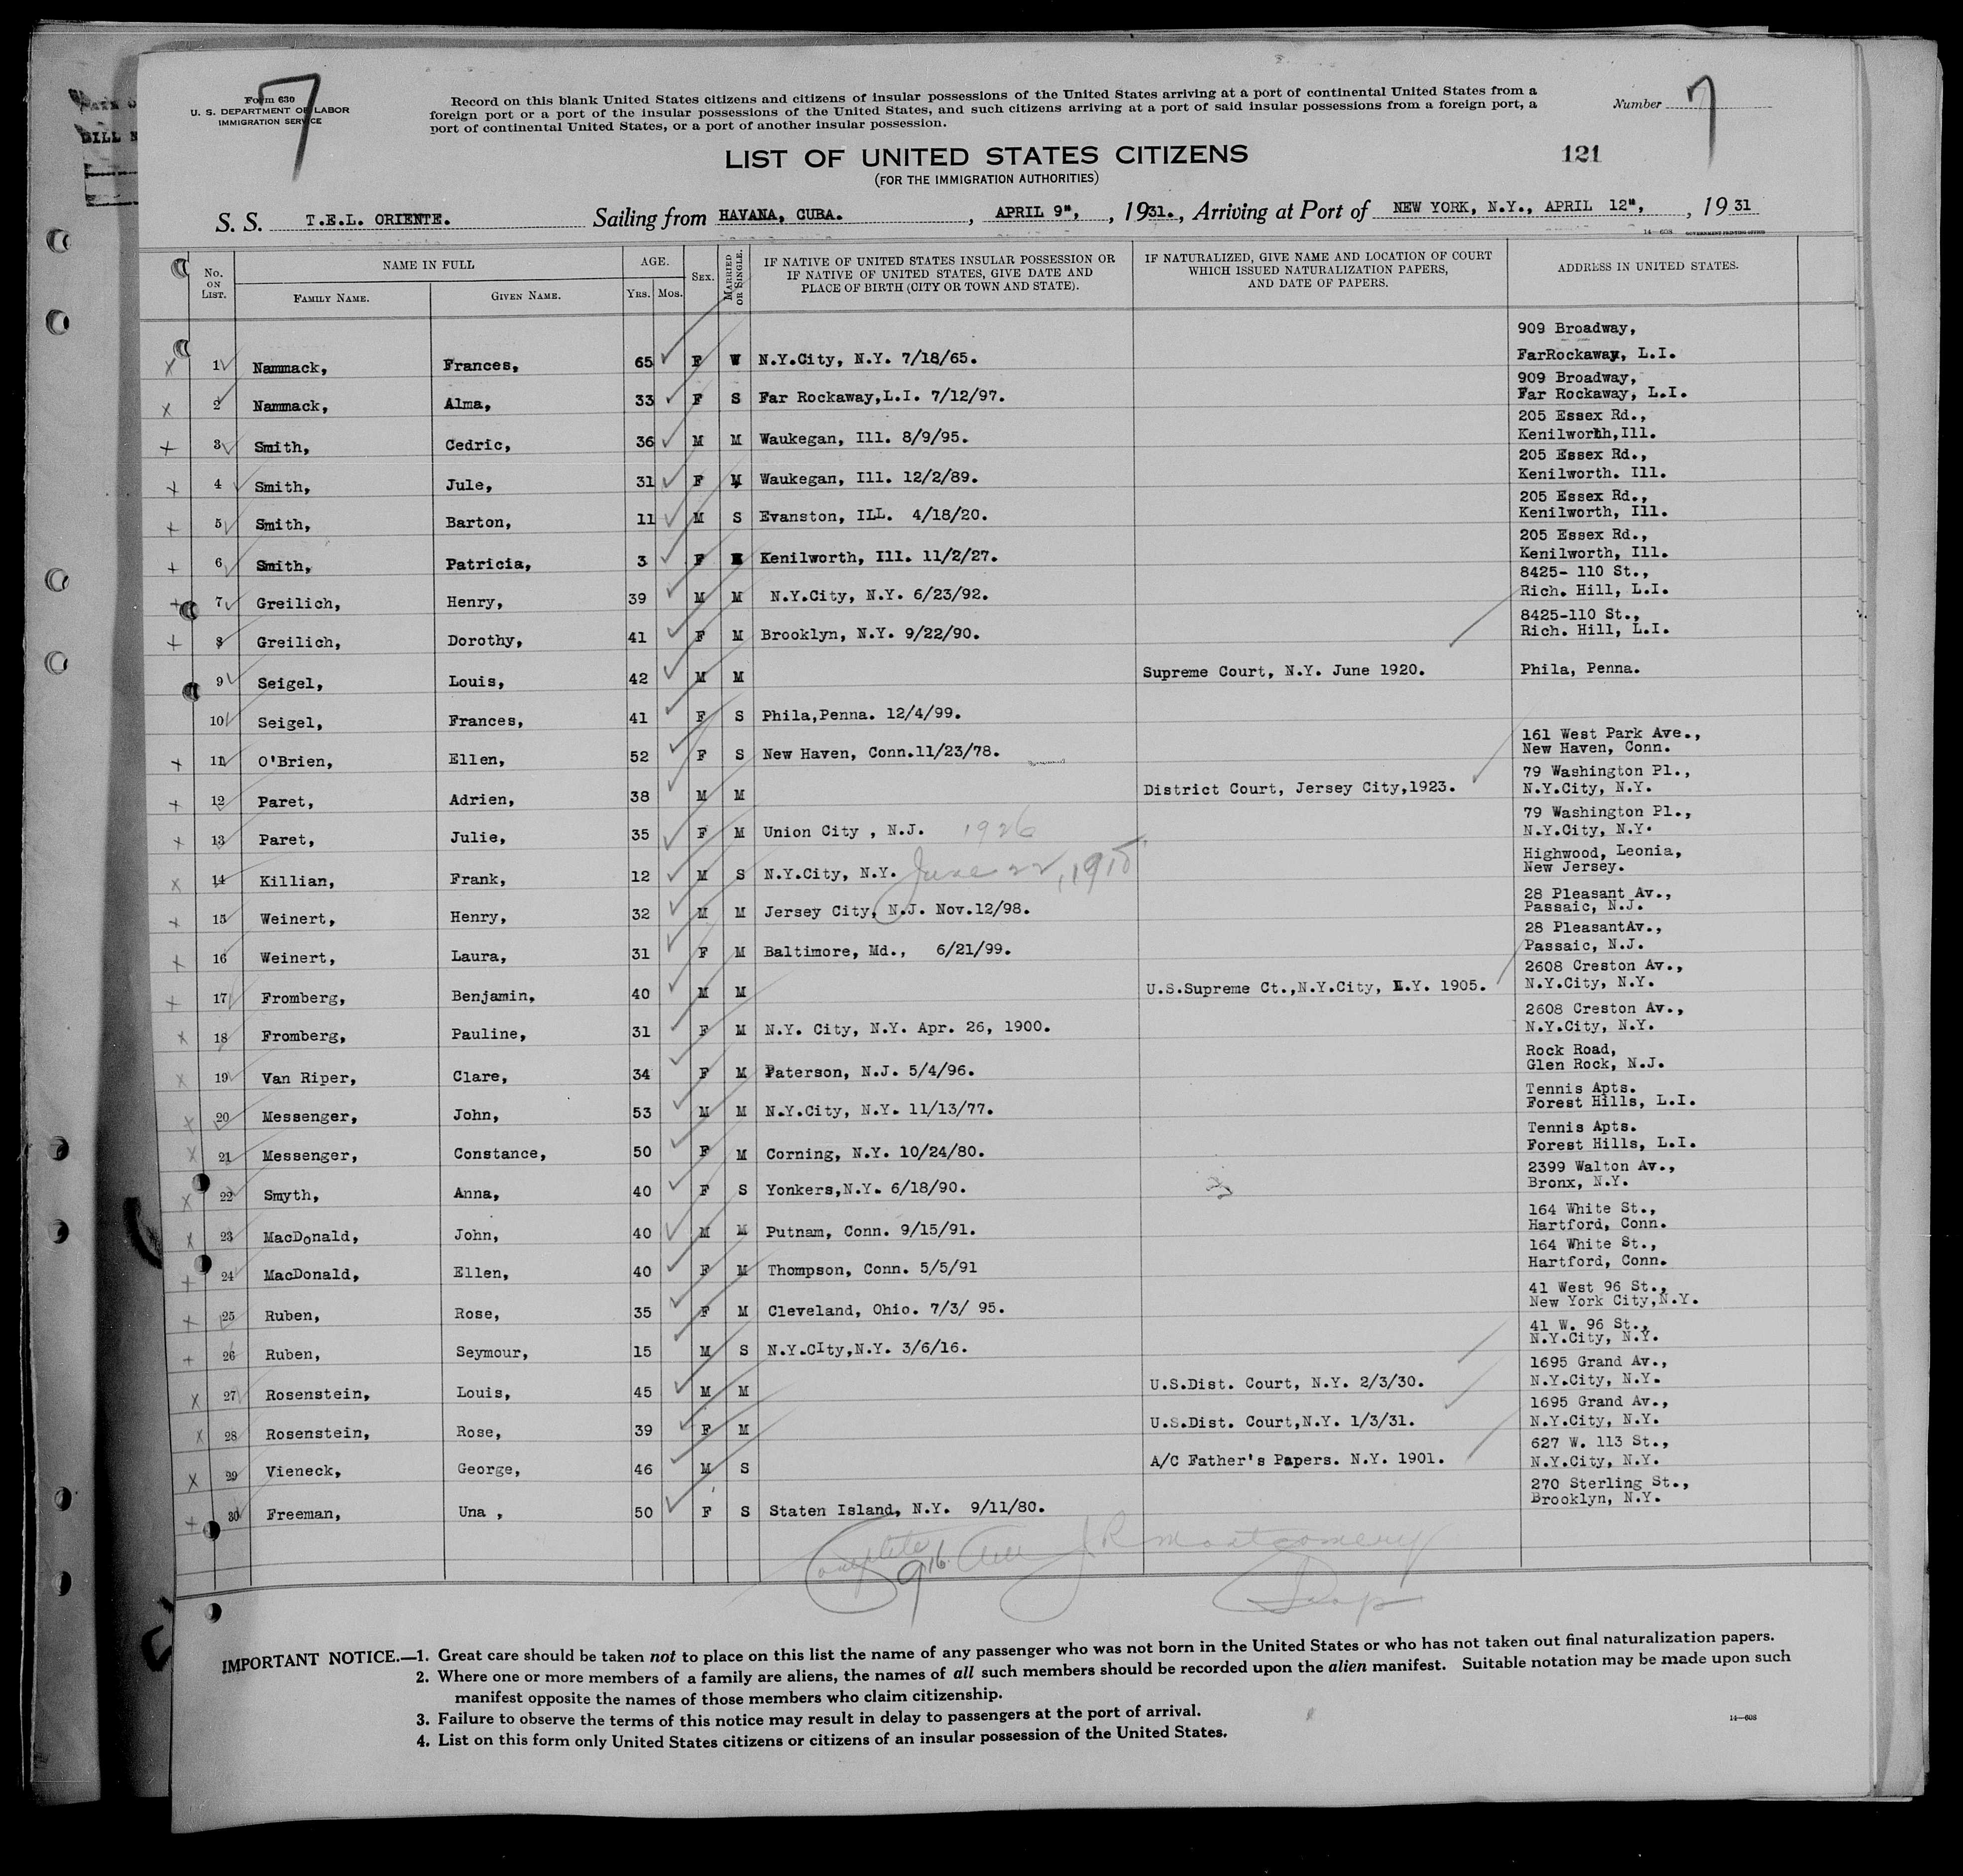 7
Form 630
U. S. DEPARTMENT OF LABOR
IMMIGRATION SERVICE
Record on this blank United States citizens and citizens of insular possessions of the United States arriving at a port of continental United States from a
foreign port or a port of the insular possessions of the United States, and such citizens arriving at a port of said insular possessions from a foreign port, a
port of continental United States, or a port of another insular possession.
Number 7
LIST OF UNITED STATES CITIZENS
(FOR THE IMMIGRATION AUTHORITIES)
121
S. S. T.E.L. ORIENTE. Sailing from HAVANA, CUBA. , APRIL 9", , 1931. , Arriving at Port of NEW YORK, N.Y., APRIL 12", , 1931
14—608 GOVERNMENT PRINTING OFFICE
No. ON LIST. NAME IN FULL FAMILY NAME. GIVEN NAME. AGE. YRS. MOS. SEX. MARRIED OR SINGLE. IF NATIVE OF UNITED STATES INSULAR POSSESSION OR IF NATIVE OF UNITED STATES, GIVE DATE AND PLACE OF BIRTH (CITY OR TOWN AND STATE). IF NATURALIZED, GIVE NAME AND LOCATION OF COURT WHICH ISSUED NATURALIZATION PAPERS, AND DATE OF PAPERS. ADDRESS IN UNITED STATES.
1 Nammack, Frances, 65 F W N.Y.City, N.Y. 7/18/65. 909 Broadway, FarRockaway, L.I.
2 Nammack, Alma, 33 F S Far Rockaway,L.I. 7/12/97. 909 Broadway, Far Rockaway, L.I.
3 Smith, Cedric, 36 M M Waukegan, Ill. 8/9/95. 205 Essex Rd., Kenilworth,Ill.
4 Smith, Jule, 31 F M Waukegan, Ill. 12/2/89. 205 Essex Rd., Kenilworth. Ill.
5 Smith, Barton, 11 M S Evanston, ILL. 4/18/20. 205 Essex Rd., Kenilworth, Ill.
6 Smith, Patricia, 3 F Kenilworth, Ill. 11/2/27. 205 Essex Rd., Kenilworth, Ill.
7 Greilich, Henry, 39 M M N.Y.City, N.Y. 6/23/92. 8425- 110 St., Rich. Hill, L.I.
8 Greilich, Dorothy, 41 F M Brooklyn, N.Y. 9/22/90. 8425-110 St., Rich. Hill, L.I.
9 Seigel, Louis, 42 M M Supreme Court, N.Y. June 1920. Phila, Penna.
10 Seigel, Frances, 41 F S Phila,Penna. 12/4/99.
11 O'Brien, Ellen, 52 F S New Haven, Conn.11/23/78. 161 West Park Ave., New Haven, Conn.
12 Paret, Adrien, 38 M M District Court, Jersey City,1923. 79 Washington Pl., N.Y.City, N.Y.
13 Paret, Julie, 35 F M Union City , N.J. 1926 79 Washington Pl., N.Y.City, N.Y.
14 Killian, Frank, 12 M S N.Y.City, N.Y. June 22, 1918 Highwood, Leonia, New Jersey.
15 Weinert, Henry, 32 M M Jersey City, N.J. Nov.12/98. 28 Pleasant Av., Passaic, N.J.
16 Weinert, Laura, 31 F M Baltimore, Md., 6/21/99. 28 PleasantAv., Passaic, N.J.
17 Fromberg, Benjamin, 40 M M U.S.Supreme Ct.,N.Y.City, N.Y. 1905. 2608 Creston Av., N.Y.City, N.Y.
18 Fromberg, Pauline, 31 F M N.Y. City, N.Y. Apr. 26, 1900. 2608 Creston Av., N.Y.City, N.Y.
19 Van Riper, Clare, 34 F M Paterson, N.J. 5/4/96. Rock Road, Glen Rock, N.J.
20 Messenger, John, 53 M M N.Y.City, N.Y. 11/13/77. Tennis Apts. Forest Hills, L.I.
21 Messenger, Constance, 50 F M Corning, N.Y. 10/24/80. Tennis Apts. Forest Hills, L.I.
22 Smyth, Anna, 40 F S Yonkers,N.Y. 6/18/90. 2399 Walton Av., Bronx, N.Y.
23 MacDonald, John, 40 M M Putnam, Conn. 9/15/91. 164 White St., Hartford, Conn.
24 MacDonald, Ellen, 40 F M Thompson, Conn. 5/5/91 164 White St., Hartford, Conn.
25 Ruben, Rose, 35 F M Cleveland, Ohio. 7/3/ 95. 41 West 96 St., New York City,N.Y.
26 Ruben, Seymour, 15 M S N.Y.CIty,N.Y. 3/6/16. 41 W. 96 St., N.Y.City, N.Y.
27 Rosenstein, Louis, 45 M M U.S.Dist. Court, N.Y. 2/3/30. 1695 Grand Av., N.Y.City, N.Y.
28 Rosenstein, Rose, 39 F M U.S.Dist. Court,N.Y. 1/3/31. 1695 Grand Av., N.Y.City, N.Y.
29 Vieneck, George, 46 M S A/C Father's Papers. N.Y. 1901. 627 W. 113 St., N.Y.City, N.Y.
30 Freeman, Una , 50 F S Staten Island, N.Y. 9/11/80. 270 Sterling St., Brooklyn, N.Y.
Complete J R Montgomery
Insp
IMPORTANT NOTICE.—1. Great care should be taken not to place on this list the name of any passenger who was not born in the United States or who has not taken out final naturalization papers.
2. Where one or more members of a family are aliens, the names of all such members should be recorded upon the alien manifest. Suitable notation may be made upon such
manifest opposite the names of those members who claim citizenship.
3. Failure to observe the terms of this notice may result in delay to passengers at the port of arrival.
4. List on this form only United States citizens or citizens of an insular possession of the United States.
14—608